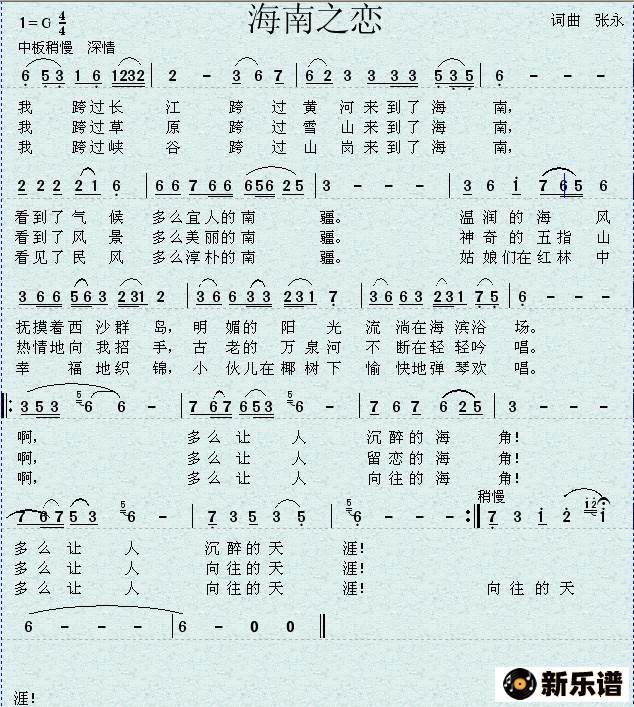 海南之恋
1=G 4/4
词曲 张永
中板稍慢 深情
6 5 3 1 6 1232 | 2 - 3 6 7 | 6 2 3 3 3 3 5 3 5 | 6 - - -
我 跨过长 江 跨 过 黄 河来到了海 南，
我 跨过草 原 跨 过 雪 山来到了海 南，
我 跨过峡 谷 跨 过 山 岗来到了海 南，
2 2 2 2 1 6 | 6 6 7 6 6 656 2 5 | 3 - - - | 3 6 i 7 6 5 6
看到了气 候 多么宜人的南 疆。 温润的海 风
看到了风 景 多么美丽的南 疆。 神奇的五指 山
看见了民 风 多么淳朴的南 疆。 姑娘们在红林 中
3 6 6 5 6 3 231 2 | 3 6 6 6 3 3 231 7 | 3 6 6 3 231 7 5 | 6 - - -
抚摸着西沙群 岛，明 媚的 阳 光 流 淌在海 滨浴 场。
热情地向我招 手，古 老的 万泉河 不 断在轻 轻吟 唱。
幸 福地织 锦，小 伙儿在椰树下 愉 快地弹 琴欢 唱。
3 5 3 5 6 6 - | 7 6 7 6 5 3 5 6 - | 7 6 7 6 2 5 | 3 - - -
啊， 多么让 人 沉醉的海 角！
啊， 多么让 人 留恋的海 角！
啊， 多么让 人 向往的海 角！
稍慢
7 6 7 5 3 5 6 - | 7 3 5 3 5 | 5 6 - - - :|| 7 3 i 2 i 2 i
多么让 人 沉醉的天 涯！
多么让 人 向往的天 涯！
多么让 人 向往的天 涯！ 向往的天
6 - - - | 6 - 0 0 ||
涯！
新乐谱